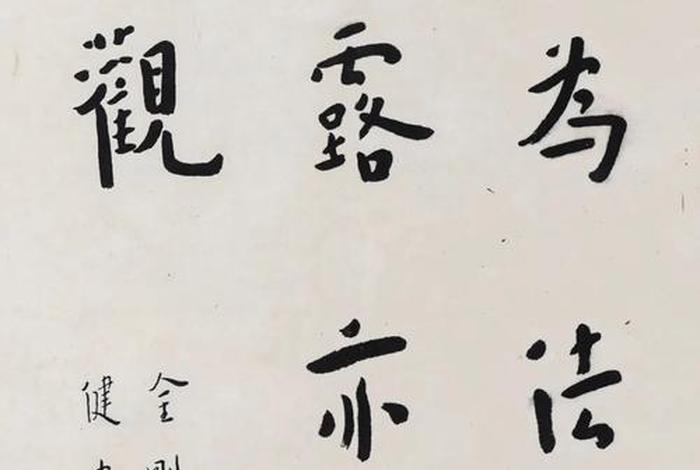 為法
露亦
觀
金剛
健